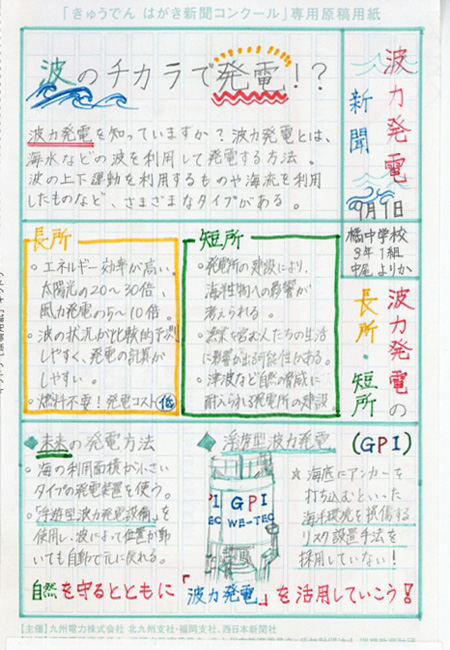 「きゅうでん はがき新聞コンクール」専用原稿用紙
波力発電
新聞
9月1日
橘中学校
3年1組
中尾 よりか
波のチカラで発電！？
波力発電を知っていますか？波力発電とは、
海水などの波を利用して発電する方法。
波の上下運動を利用するものや海流を利用
したものなど、さまざまなタイプがある。
波力発電の
長所・短所
長所
・エネルギー効率が高い。
太陽光の20〜30倍、
風力発電の5〜10倍。
・波の状況が比較的予測
しやすく、発電の計算が
しやすい。
・燃料不要！発電コスト低
短所
・発電所の建設により、
海洋生物への影響が
考えられる。
・漁業を営む人たちの生活
に影響が出る可能性がある。
・津波など自然の脅威に
耐えられる発電所の建設。
◆未来の発電方法
・海の利用面積が小さい
タイプの発電装置を使う。
・「浮遊型波力発電設備」を
使用し、波によって位置が動
いても自動で元に戻れる。
◆浮遊型波力発電
(GPI)
PI GPI
EC WE-TEC
☆海底にアンカーを
打ち込むといった
海洋環境を損傷する
リスク設置手法を
採用していない！
自然を守るとともに「波力発電」を活用していこう！
【主催】九州電力株式会社 北九州支社・福岡支社、西日本新聞社